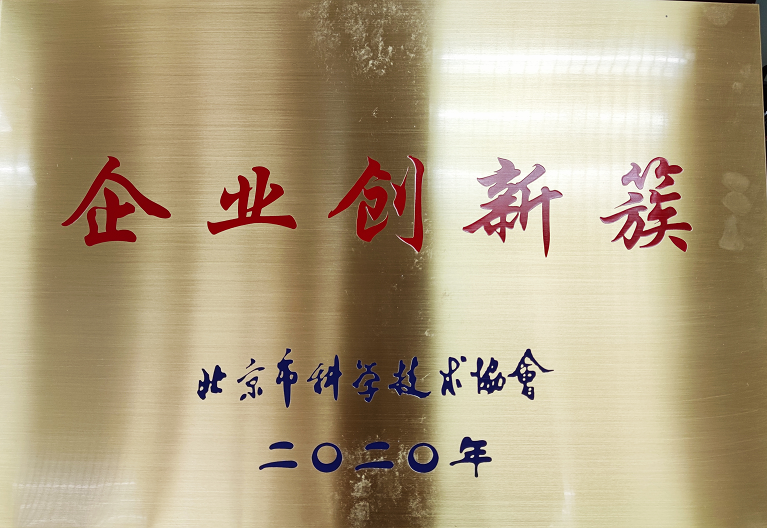 企业创新簇
北京市科学技术协會
二〇二〇年